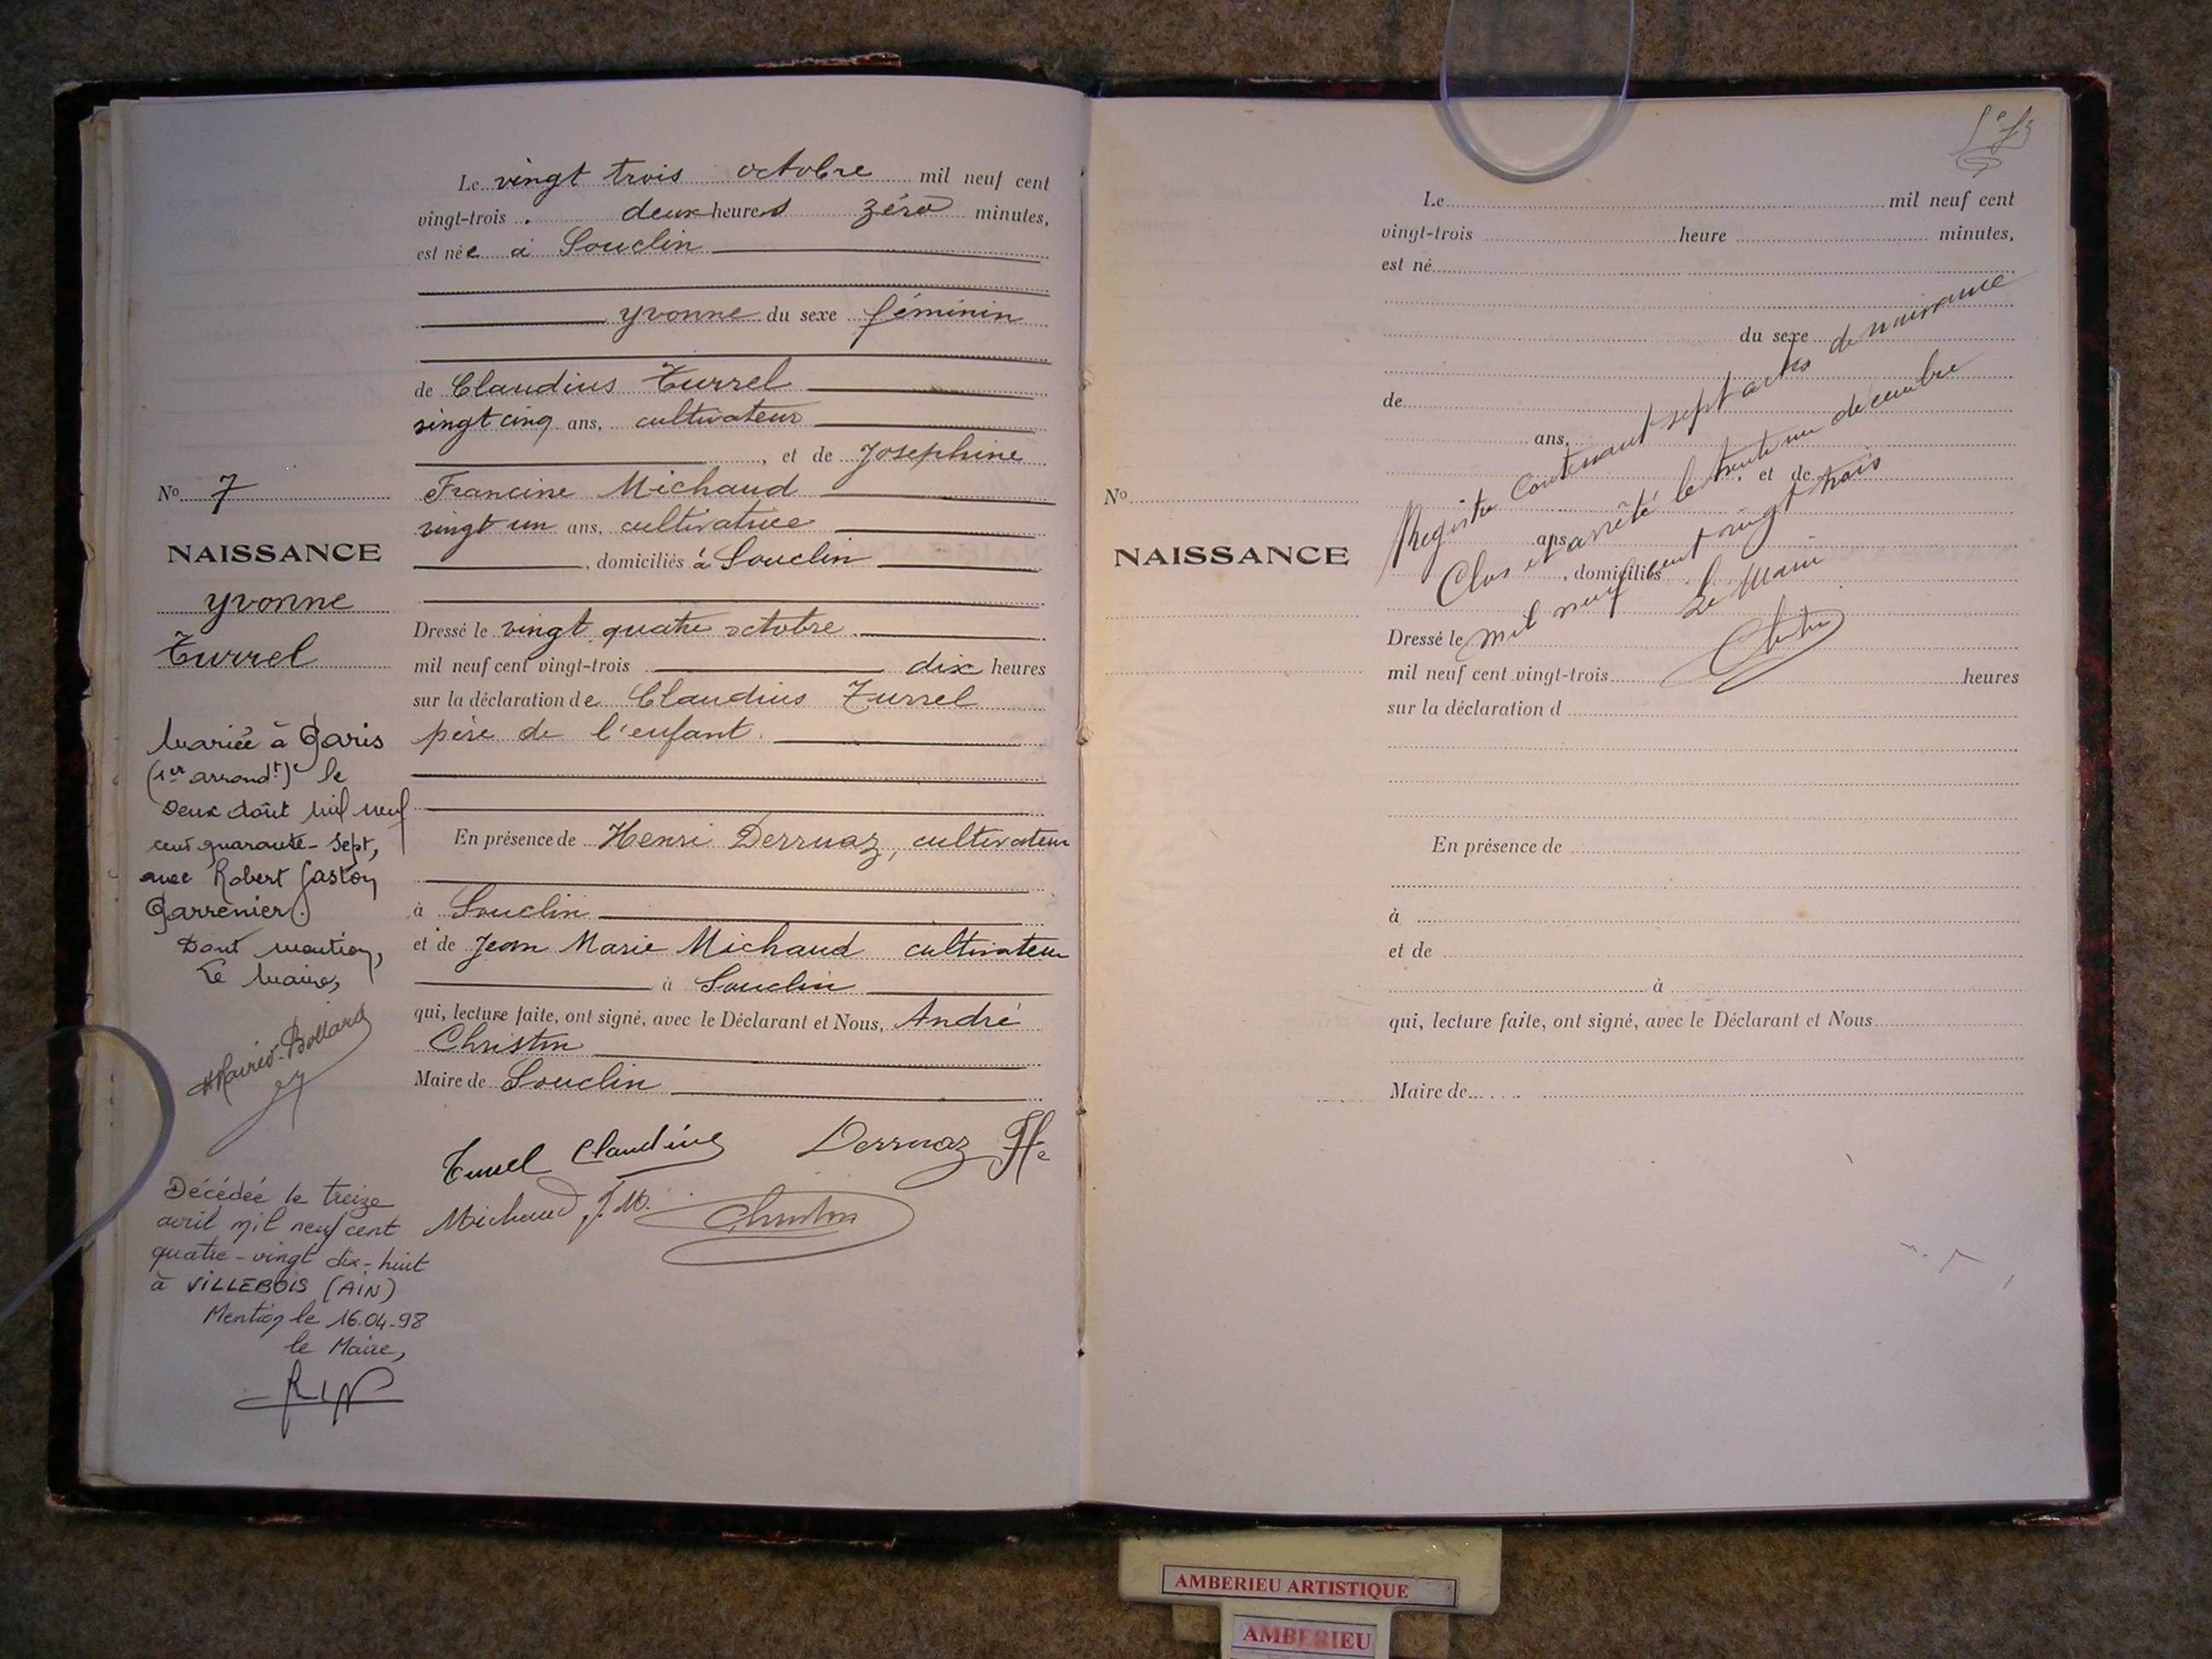 Le vingt trois octobre mil neuf cent
vingt-trois deux heures zéro minutes,
est née à Souclin
yvonne du sexe féminin
de Claudius Turrel
vingt cinq ans, cultivateur
, et de Josephine
Francine Michaud
vingt un ans, cultivatrice
, domiciliés à Souclin
Dressé le vingt quatre octobre
mil neuf cent vingt-trois dix heures
sur la déclaration de Claudius Turrel
père de l'enfant.
En présence de Henri Derruaz, cultivateur
à Souclin
et de Jean Marie Michaud cultivateur
à Souclin
qui, lecture faite, ont signé, avec le Déclarant et Nous, André
Christin
Maire de Souclin
Turrel Claudius Derruaz
Michaud J. M. Christin
No 7
NAISSANCE
yvonne
Turrel
Mariée à Paris
(1er arrondt) le
Deux août mil neuf
cent quarante-sept,
avec Robert Gaston
Parrenier.
Dont mention,
Le Maire,
Décédée le treize
avril mil neuf cent
quatre-vingt dix-huit
à VILLEBOIS (AIN)
Mention le 16.04.98
le Maire,
Le mil neuf cent
vingt-trois heure minutes,
est né
du sexe
de
ans,
, et de
ans,
, domiciliés
Dressé le
mil neuf cent vingt-trois heures
sur la déclaration d
En présence de
à
et de
à
qui, lecture faite, ont signé, avec le Déclarant et Nous
Maire de
No
NAISSANCE
Registre Contenant sept actes de naissance
Clos et arrêté le trente un décembre
mil neuf cent vingt trois
Le Maire
Christin
AMBERIEU ARTISTIQUE
AMBERIEU